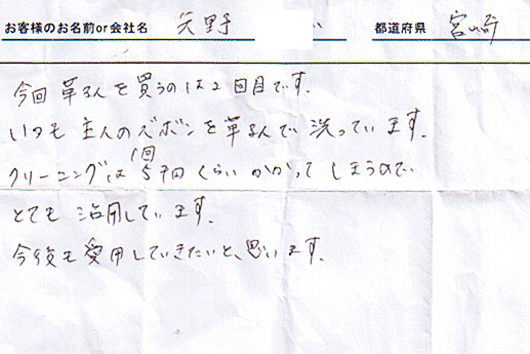 お客様のお名前or会社名 矢野 都道府県 宮崎
今回 革るんを買うのは2回目です.
いつも 主人のズボンを革るんで洗っています.
クリーニングは1回5千円くらいかかってしまうので
とても活用しています.
今後も愛用していきたいと、思います.